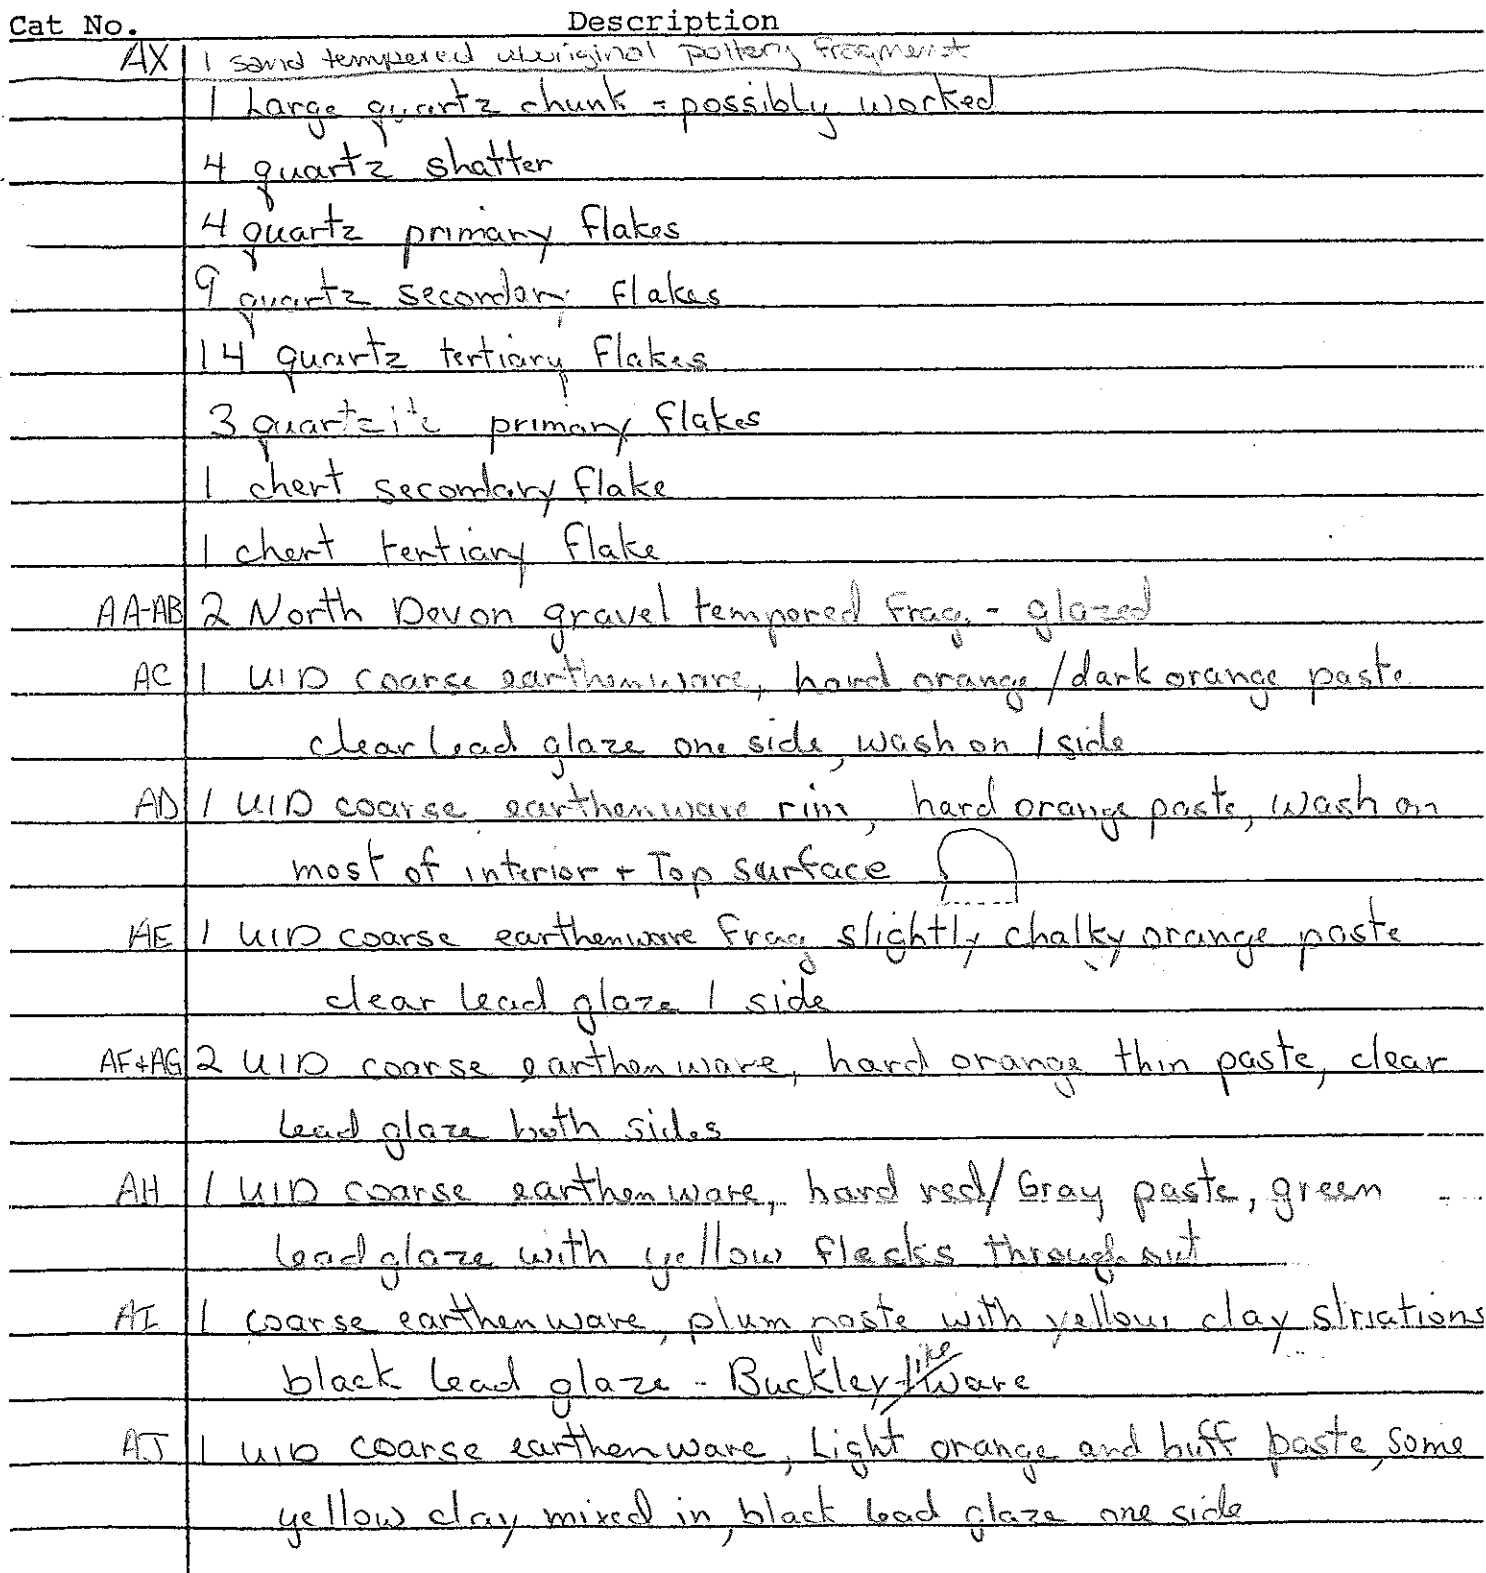 Cat No. Description
AX 1 sand tempered aboriginal pottery fragment
1 Large quartz chunk - possibly worked
4 quartz shatter
4 quartz primary flakes
9 quartz secondary flakes
14 quartz tertiary flakes
3 quartzite primary flakes
1 chert secondary flake
1 chert tertiary flake
AA-AB 2 North Devon gravel tempored frag. - glazed
AC 1 UID coarse earthenware, hard orange/dark orange paste
clear lead glaze one side, wash on 1 side
AD 1 UID coarse earthenware rim, hard orange paste, wash on
most of interior + Top surface
AE 1 UID coarse earthenware frag slightly chalky orange paste
clear lead glaze 1 side
AF+AG 2 UID coarse earthenware, hard orange thin paste, clear
lead glaze both sides
AH 1 UID coarse earthenware, hard red/Gray paste, green
lead glaze with yellow flecks throughout
AI 1 coarse earthenware, plum paste with yellow clay striations
black lead glaze - Buckley-like Ware
AJ 1 UID coarse earthenware, Light orange and buff paste, some
yellow clay mixed in, black lead glaze one side